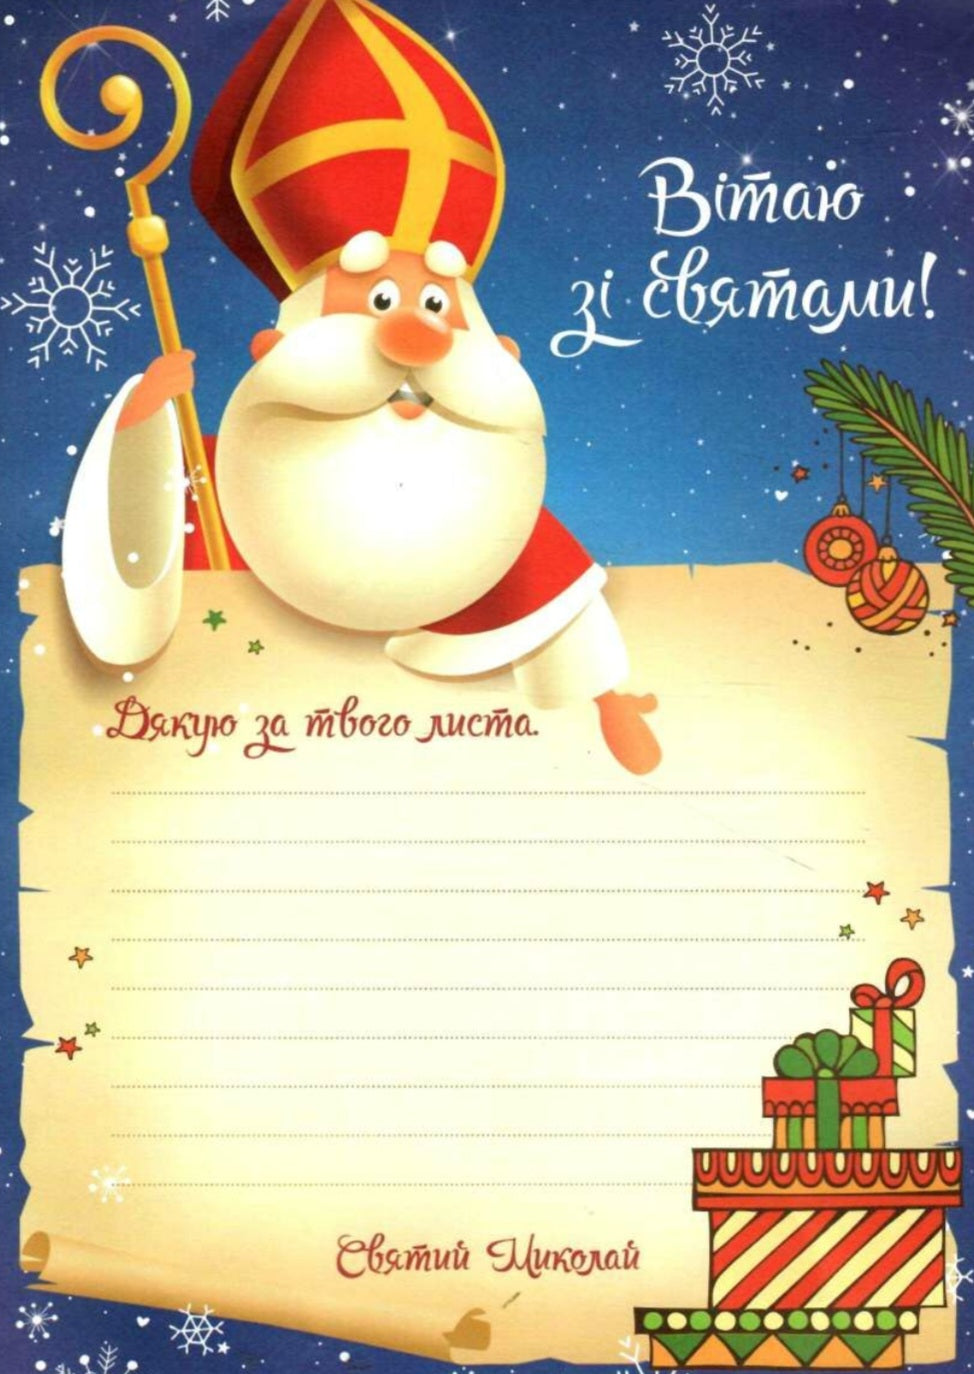 Вітаю
зі святами!
Дякую за твого листа.
Святий Миколай